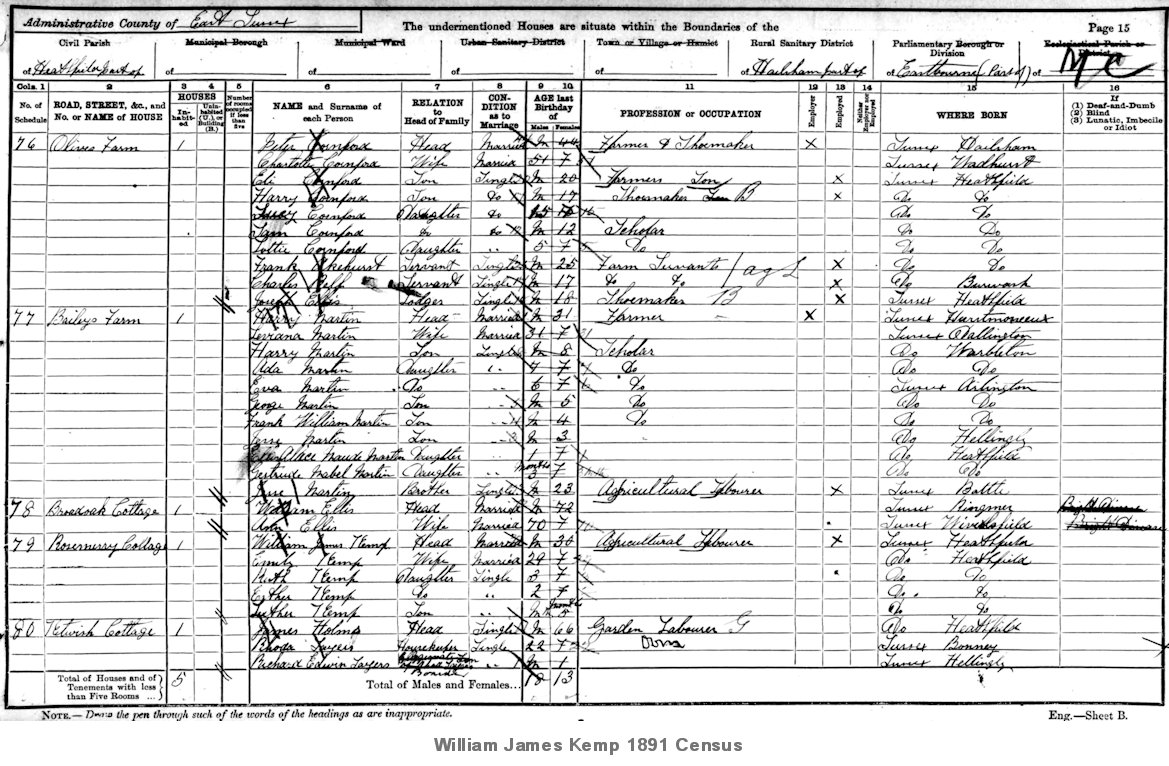 Administrative County of East Sussex
The undermentioned Houses are situate within the Boundaries of the
Page 15
Civil Parish
Municipal Borough
Municipal Ward
Urban Sanitary District
Town or Village or Hamlet
Rural Sanitary District
Parliamentary Borough or Division
Ecclesiastical Parish or District
of Heathfield part of
of
of
of
of
of Hailsham part of
of Eastbourne (Part of)
of
Cols. 1 2 3 4 5 6 7 8 9 10 11 12 13 14 15 16
No. of Schedule
ROAD, STREET, &c., and No. or NAME of HOUSE
HOUSES
Inhabited
Uninhabited (U.), or Building (B.)
Number of rooms occupied if less than five
NAME and Surname of each Person
RELATION to Head of Family
CONDITION as to Marriage
AGE last Birthday of
Males Females
PROFESSION or OCCUPATION
Employer
Employed
Neither Employer nor Employed
WHERE BORN
If
(1) Deaf-and-Dumb
(2) Blind
(3) Lunatic, Imbecile or Idiot
76 Olives Farm 1 Peter Cornford Head Married M 44 Farmer & Shoemaker X Sussex Hailsham
Charlotte Cornford Wife Married 51 7 Sussex Wadhurst
Eli Cornford Son Single M 20 Farmers Son X Sussex Heathfield
Harry Cornford Son Do M 17 Shoemaker B X Do Do
Cornford Daughter Do Do Do
Sam Cornford Do Do M 12 Scholar Do Do
Lottie Cornford Daughter " 5 7 Do Do Do
Frank Akehurst Servant Single M 25 Farm Servants Ag L X Do Do
Charles Servant Single M 17 Do Do X Do Burwash
Joseph Ellis Lodger Single M 18 Shoemaker B X Sussex Heathfield
77 Baileys Farm 1 Harry Martin Head Married M 31 Farmer X Sussex Hurstmonceux
Martin Wife Married 31 7 Sussex Dallington
Harry Martin Son Single M 8 Scholar Do Warbleton
Ada Martin Daughter " 7 7 Do Do Do
Eva Martin Do " 6 7 Do Sussex Arlington
George Martin Son " M 5 Do Do Do
Frank William Martin Son " M 4 Do Do Do
Jesse Martin Son " M 3 " Do Hellingly
Alace Maude Martin Daughter " 1 7 Do Heathfield
Gertrude Mabel Martin Daughter " months 3 7 Do Do
Martin Brother Single M 23 Agricultural Labourer X Sussex Battle
78 Broadoak Cottage 1 William Ellis Head Married M 72 Sussex Ringmer
Ann Ellis Wife Married 70 7 Sussex Wivelsfield
79 Rosemerry Cottage 1 William James Kemp Head Married M 30 Agricultural Labourer X Sussex Heathfield
Emily Kemp Wife Married 29 7 Do Heathfield
Ruth Kemp Daughter Single 3 7 Do Do
Esther Kemp Do " 2 7 Do Do
Luther Kemp Son " M 5 months Do Do
80 Cottage 1 James Holmes Head Single M 66 Garden Labourer G Do Heathfield
Rhoda Sayers Housekeeper Single 22 7 Dom Sussex
Richard Edwin Sayers " M 1 Sussex Hellingly
Total of Houses and of Tenements with less than Five Rooms ... 5
Total of Males and Females... 18 13
NOTE.—Draw the pen through such of the words of the headings as are inappropriate.
Eng.—Sheet B.
William James Kemp 1891 Census